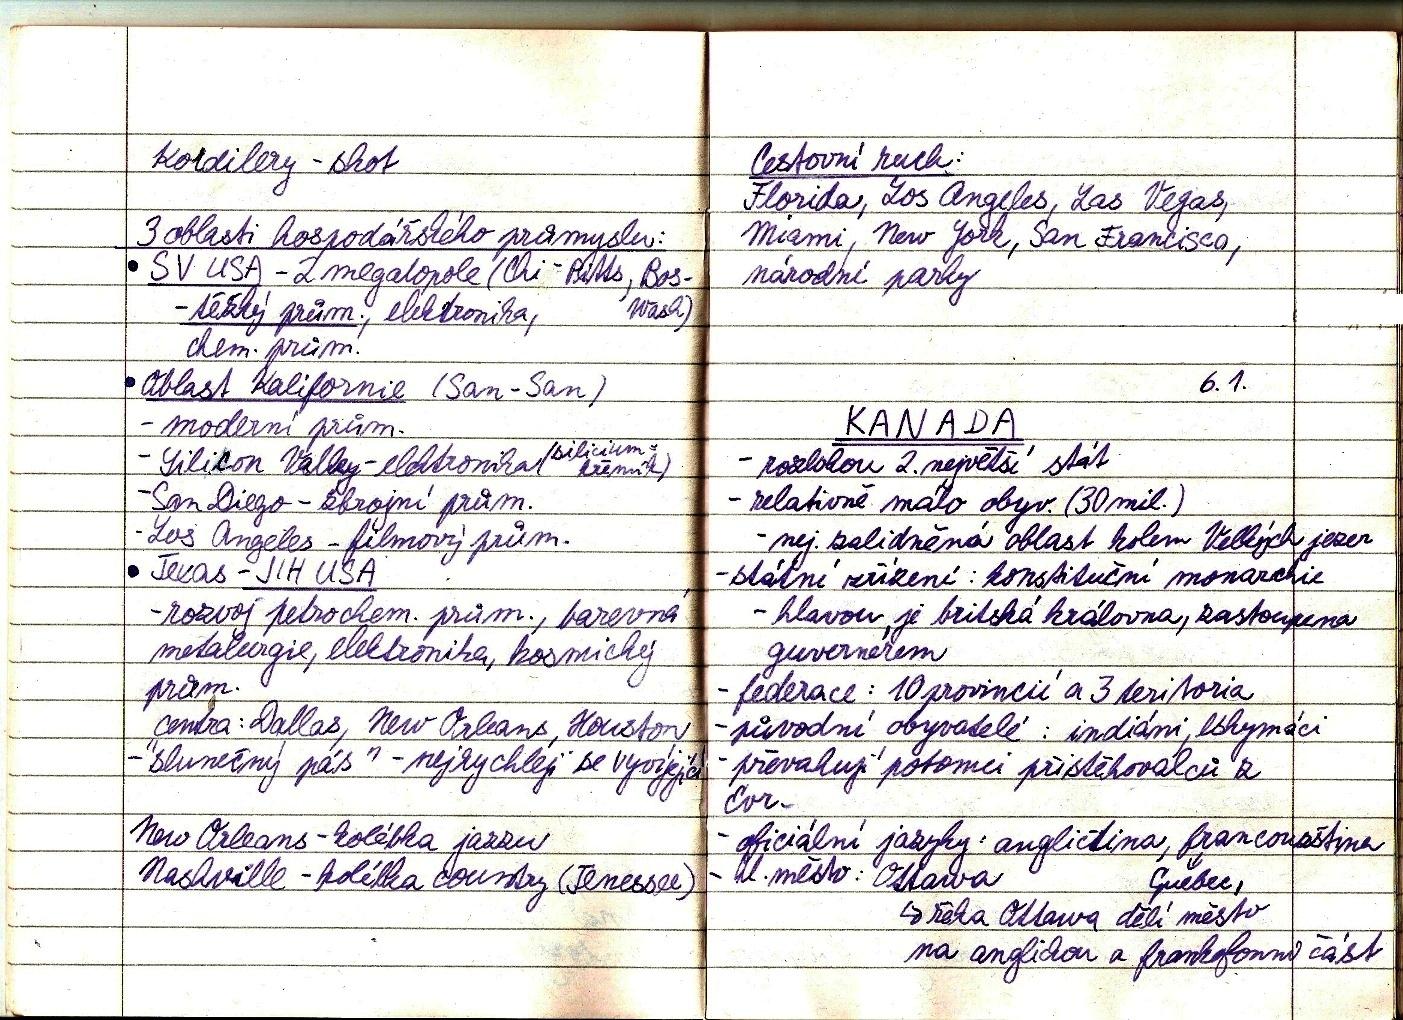 Kordilery - skot
3 oblasti hospodářského průmyslu:
• SV USA - 2 megalopole (Chi - Pitts, Bos-
Wash)
- těžký prům., elektronika,
chem. prům.
• Oblast Kalifornie (San-San)
- moderní prům.
- Silicon Valley - elektronika (silicium =
křemík)
- San Diego - zbrojní prům.
- Los Angeles - filmový prům.
• Texas - JIH USA
- rozvoj petrochem. prům., barevná
metalurgie, elektronika, kosmický
prům.
centra: Dallas, New Orleans, Houston
- "slunečný pás" - nejrychleji se vyvíjející
New Orleans - kolébka jazzu
Nashville - kolébka country (Tenessee)
Cestovní ruch:
Florida, Los Angeles, Las Vegas,
Miami, New York, San Francisco,
národní parky
6.1.
KANADA
- rozlohou 2. největší stát
- relativně málo obyv. (30 mil.)
- nej. zalidněná oblast kolem Velkých jezer
- státní zřízení: konstituční monarchie
- hlavou je britská královna, zastoupena
guvernérem
- federace: 10 provincií a 3 teritoria
- původní obyvatelé: indiáni, Eskymáci
- převahují potomci přistěhovalců z
Evr.
- oficiální jazyky: angličtina, francouzština
- hl. město: Ottawa Québec,
↳ řeka Ottawa dělí město
na anglickou a frankofonní část